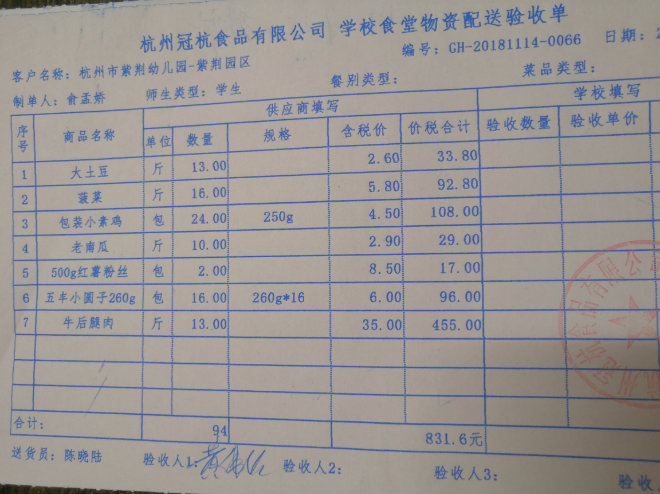 杭州冠杭食品有限公司 学校食堂物资配送验收单
编号: GH-20181114-0066 日期: 2
客户名称: 杭州市紫荆幼儿园-紫荆园区
制单人: 俞孟娇 师生类型: 学生 餐别类型: 菜品类型:
序号 商品名称 供应商填写 学校填写
单位 数量 规格 含税价 价税合计 验收数量 验收单价
1 大土豆 斤 13.00 2.60 33.80
2 菠菜 斤 16.00 5.80 92.80
3 包装小素鸡 包 24.00 250g 4.50 108.00
4 老南瓜 斤 10.00 2.90 29.00
5 500g红薯粉丝 包 2.00 8.50 17.00
6 五丰小圆子260g 包 16.00 260g*16 6.00 96.00
7 牛后腿肉 斤 13.00 35.00 455.00
合计: 94 831.6元
送货员: 陈晓陆 验收人1: 验收人2: 验收人3: 学校